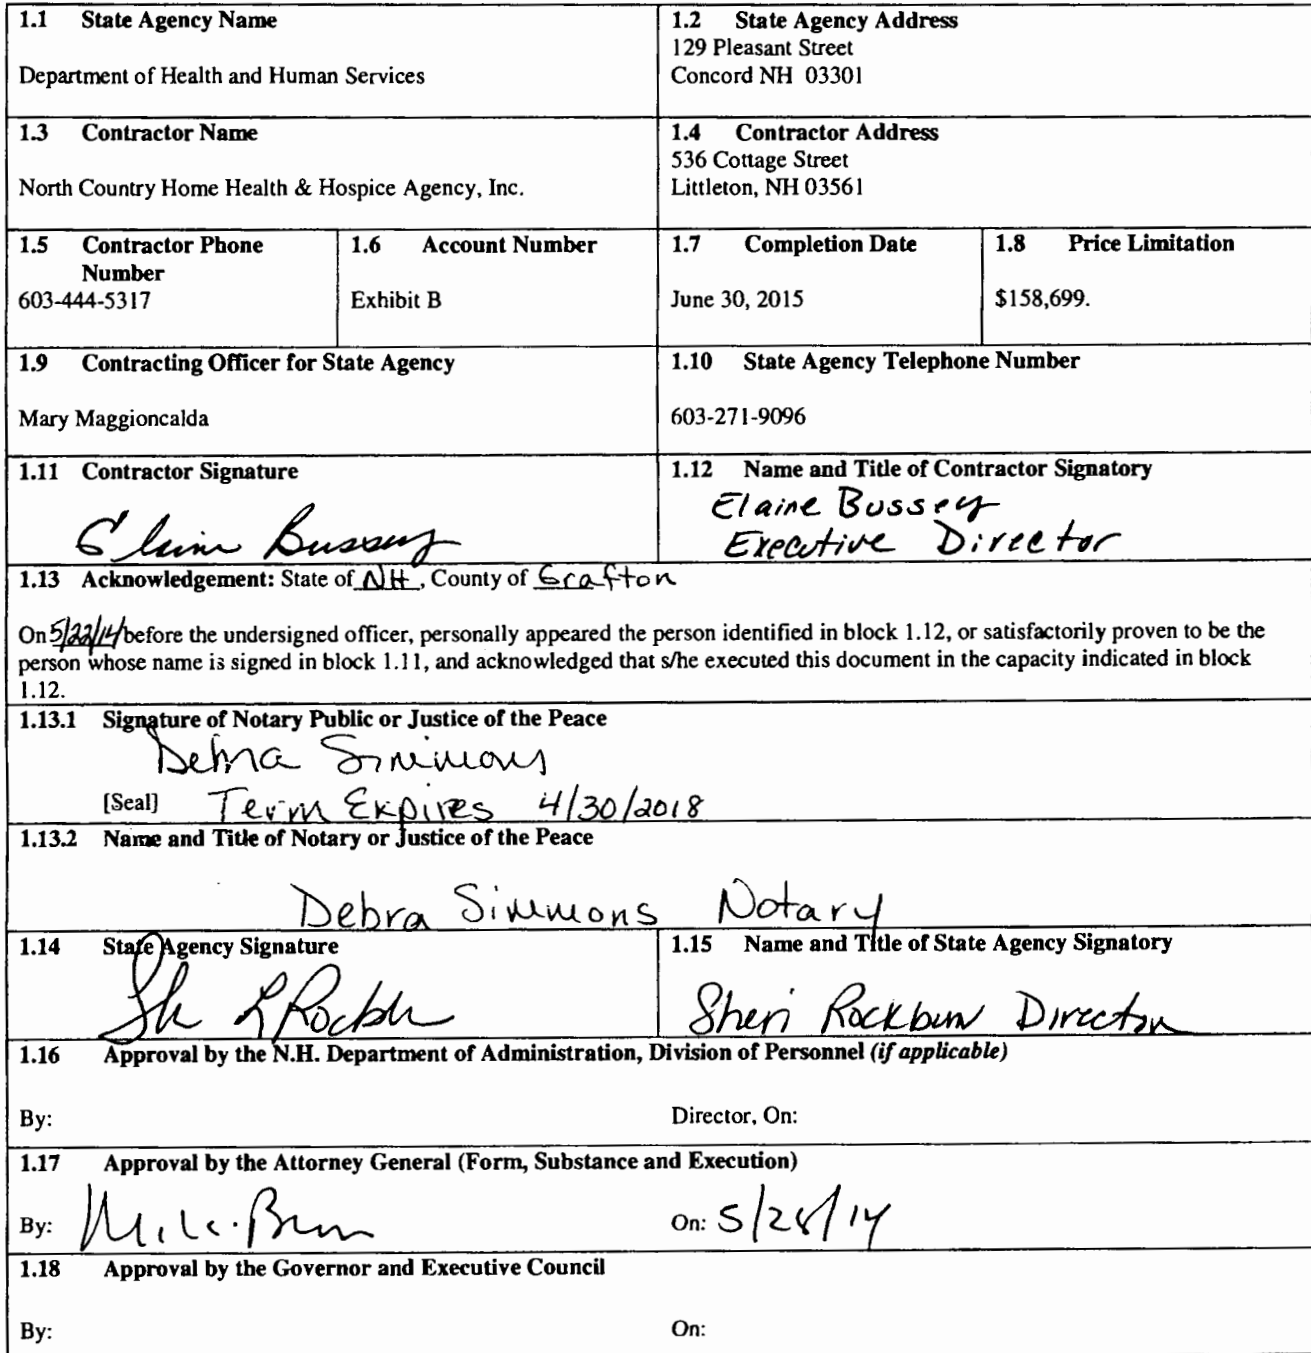 1.1 State Agency Name
Department of Health and Human Services
1.2 State Agency Address
129 Pleasant Street
Concord NH 03301
1.3 Contractor Name
North Country Home Health & Hospice Agency, Inc.
1.4 Contractor Address
536 Cottage Street
Littleton, NH 03561
1.5 Contractor Phone
Number
603-444-5317
1.6 Account Number
Exhibit B
1.7 Completion Date
June 30, 2015
1.8 Price Limitation
$158,699.
1.9 Contracting Officer for State Agency
Mary Maggioncalda
1.10 State Agency Telephone Number
603-271-9096
1.11 Contractor Signature
Elaine Bussey
1.12 Name and Title of Contractor Signatory
Elaine Bussey
Executive Director
1.13 Acknowledgement: State of NH, County of Grafton
On 5/22/14 before the undersigned officer, personally appeared the person identified in block 1.12, or satisfactorily proven to be the
person whose name is signed in block 1.11, and acknowledged that s/he executed this document in the capacity indicated in block
1.12.
1.13.1 Signature of Notary Public or Justice of the Peace
Debra Simmons
[Seal] Term Expires 4/30/2018
1.13.2 Name and Title of Notary or Justice of the Peace
Debra Simmons Notary
1.14 State Agency Signature
1.15 Name and Title of State Agency Signatory
Sheri Rockburn Director
1.16 Approval by the N.H. Department of Administration, Division of Personnel (if applicable)
By: Director, On:
1.17 Approval by the Attorney General (Form, Substance and Execution)
By: On: 5/28/14
1.18 Approval by the Governor and Executive Council
By: On: